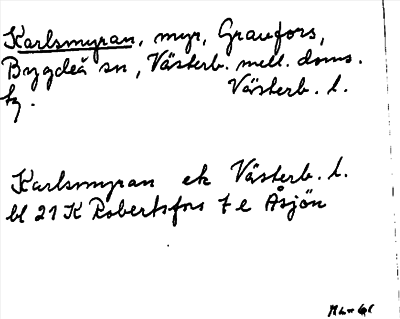 Karlsmyran, myr, Granfors,
Bygdeå sn, Västerb. mell. doms.
tg. Västerb. l.
Karlsmyran ek Västerb. l.
bl 21 K Robertsfors 7 e Åsjön